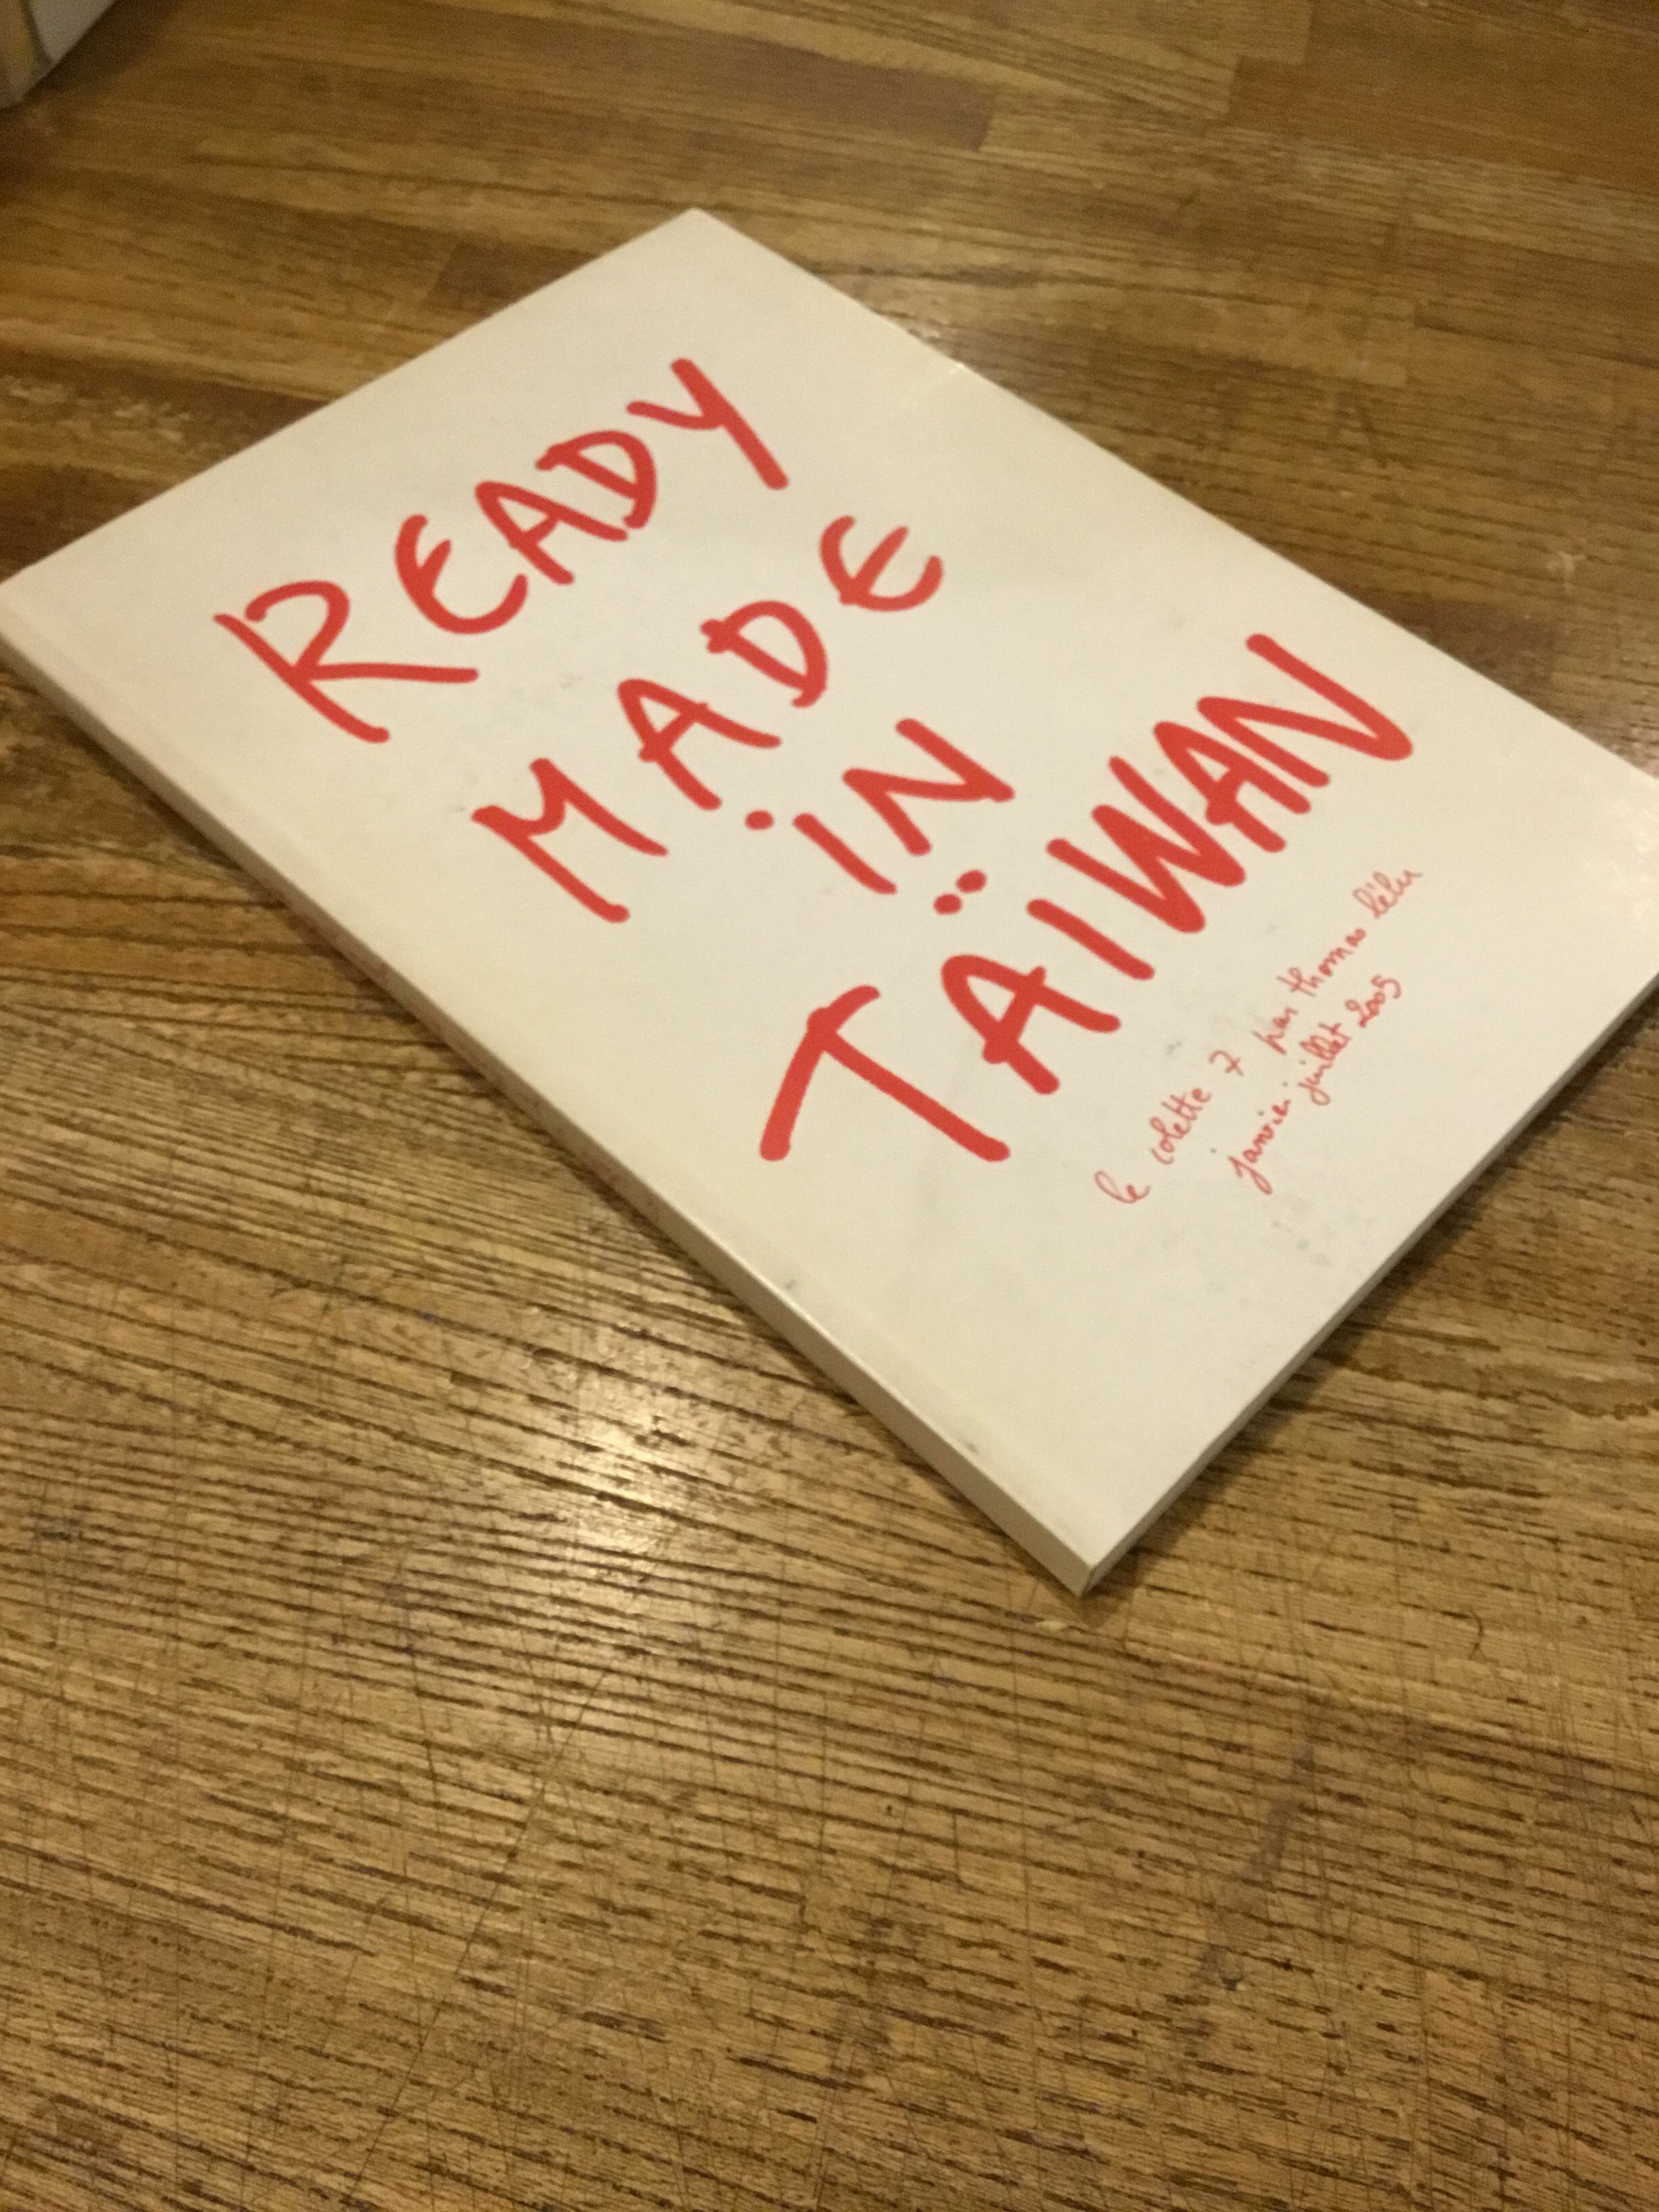 READY
MADE
iN
TAÏWAN
le colette 7 par thomas lélu
janvier juillet 2005